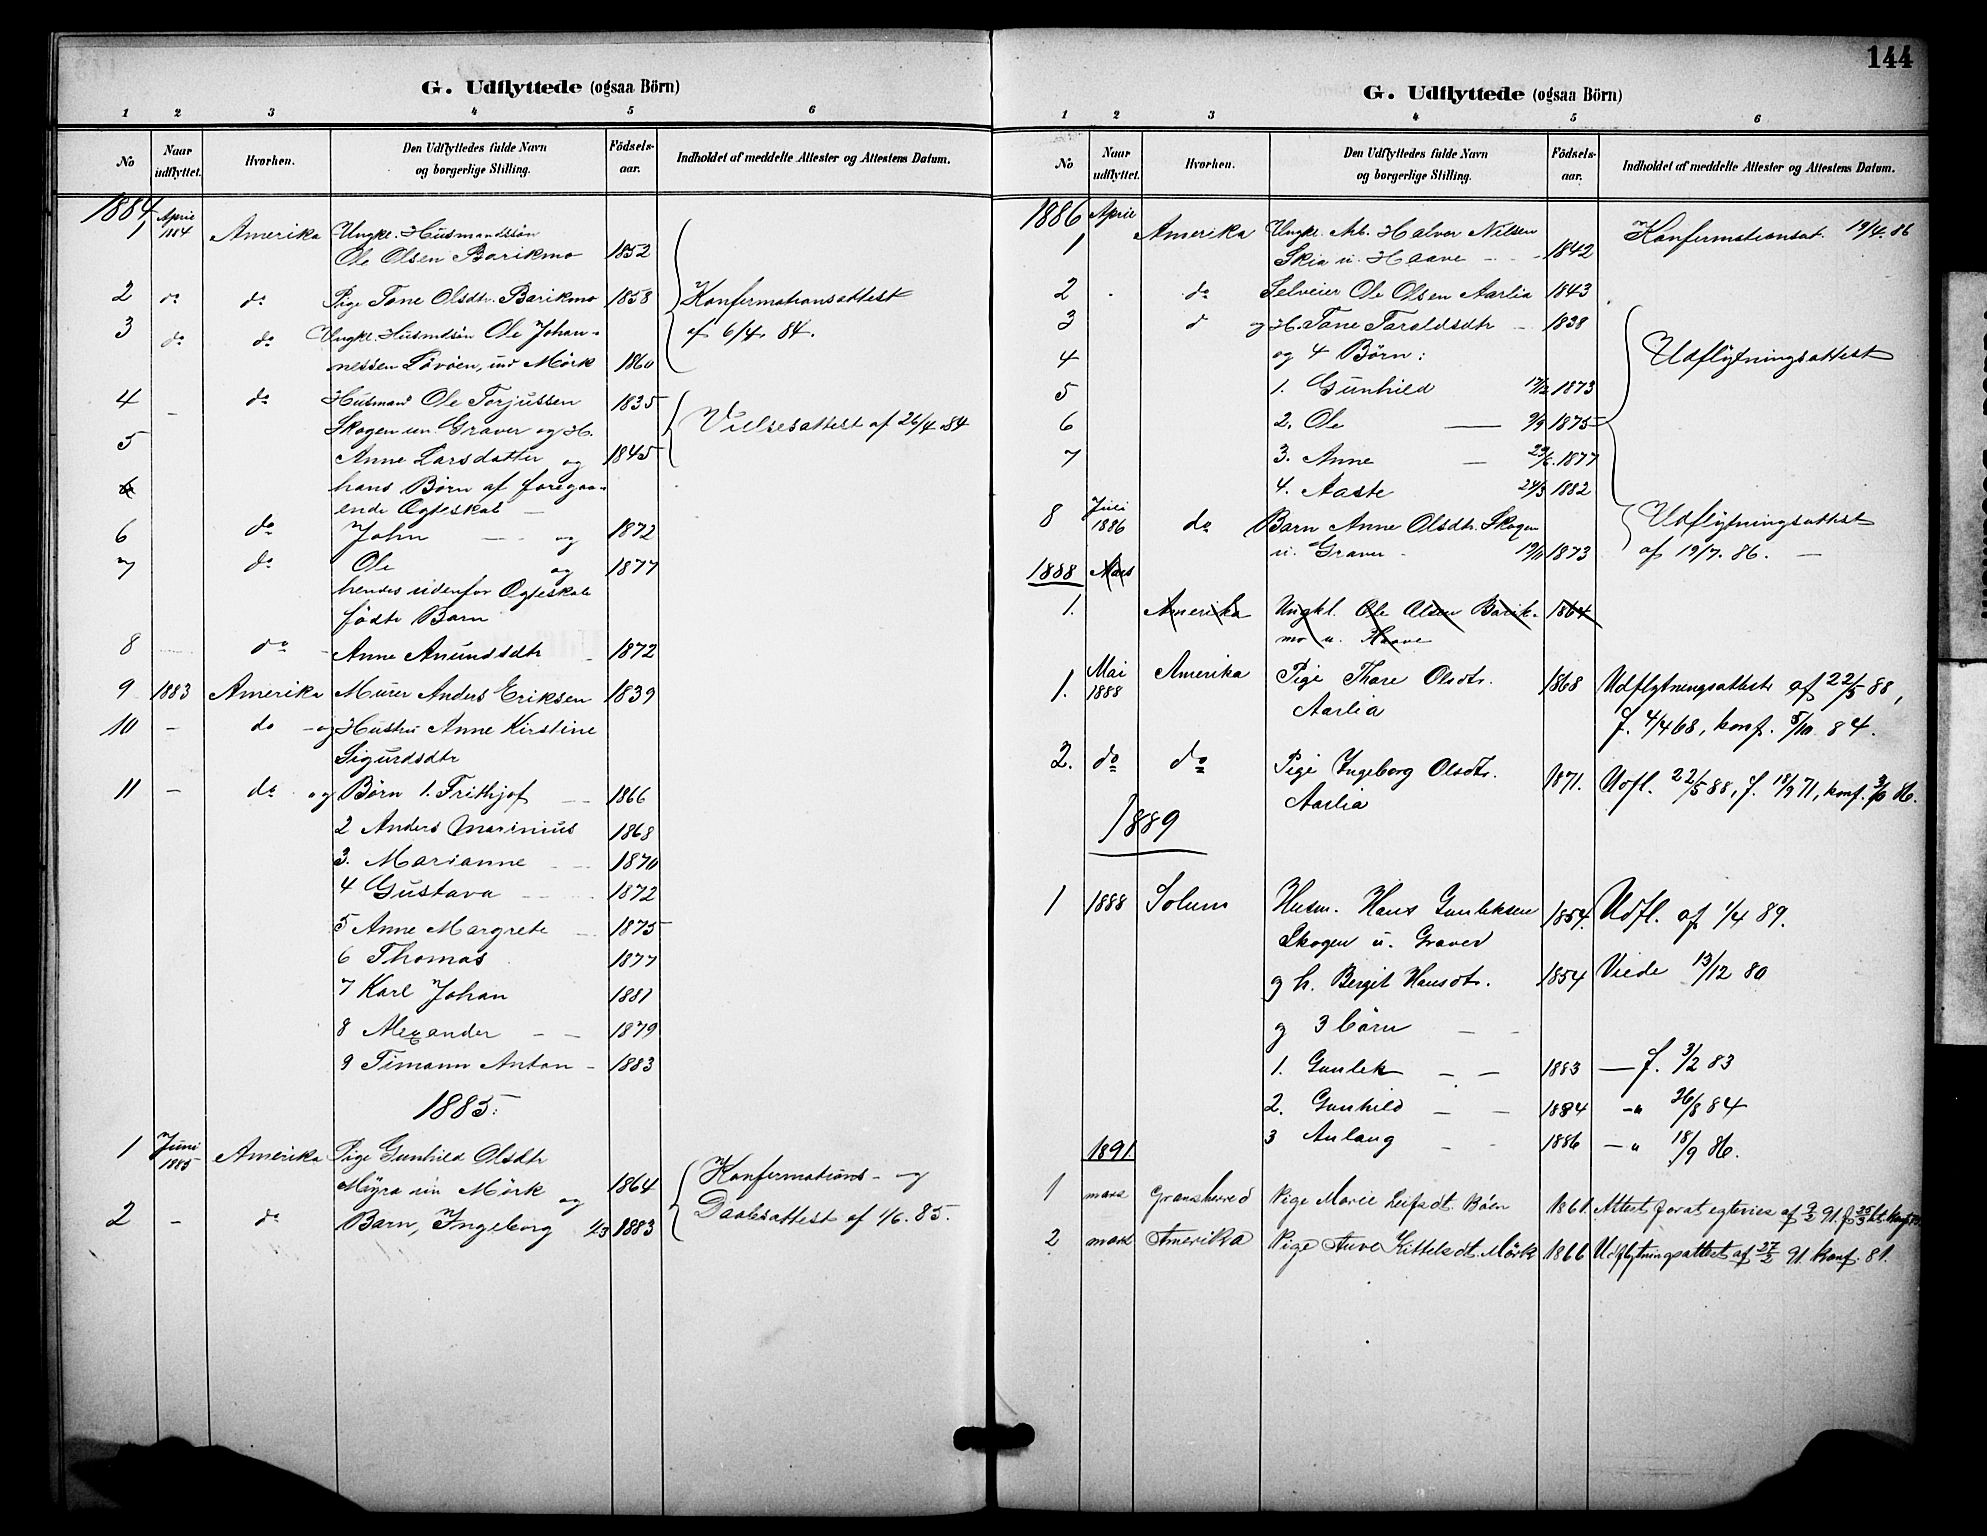 G. Udflyttede (ogsaa Börn)
1 2 3 4 5 6
No Naar udflyttet. Hvorhen. Den Udflyttedes fulde Navn og borgerlige Stilling. Födsels-aar. Indholdet af meddelte Attester og Attestens Datum.
1884
1 April 1884 Amerika Ungkl. Husmandssön
Ole Olsen Barikmo 1852
2 do do Pige Tone Olsdtr. Barikmo 1858 Konfermationsattest
3 do do Ungkl. Husmdsön Ole Johan- af 6/4 84.
nessen Lövöen, und Mörk 1860
4 - do Husmand Ole Torjussen 1835
Skogen un. Graver og H. Vielsesattest af 26/4 84
5 Anne Larsdatter og 1845
hans Börn af foregaa-
ende Ægteskab -
6 do John - og 1872
7 do Ole og 1877
hendes udenfor Ægteskab
födte Barn
8 do Anne Anundsdtr 1872
9 1883 Amerika Murer Anders Eriksen 1839
10 - do - og Hustru Anne Kirstine
Sigurdsdtr
11 - do og Börn 1. Frithjof 1866
2 Anders Marinius 1868
3. Marianne 1870
4 Gustava 1872
5 Anne Margrete 1875
6 Thomas 1877
7 Karl Johan 1881
8 Alexander 1879
9 Timann Anton - 1883
1885.
1 Juni 1885 Amerika Pige Gunhild Olsdtr
Myra un Mörk og 1864 Konfermations- og
2 - do Barn, Ingeborg 1/3 1883 Daabsattest af 1/6. 85.
144
G. Udflyttede (ogsaa Börn)
1 2 3 4 5 6
No Naar udflyttet. Hvorhen. Den Udflyttedes fulde Navn og borgerlige Stilling. Födsels-aar. Indholdet af meddelte Attester og Attestens Datum.
1886 April
1 Amerika Ungkl. Arb. Halvor Nilsen Konfermationsat. 19/4. 86
Skia u. Haave - - 1842
2 . do Selveier Ole Olsen Aarlia 1843
3 d og H. Tone Taraldsdtr - 1838
4 og 4 Börn: Udflytningsattest
5 1. Gunhild 17/12 1873
6 2. Ole 9/9 1875
7 3. Anne 29/6. 1877
4. Aaste 24/3 1882
8 Juli 1886 do Barn Anne Olsdtr. Skogen Udflytningsattest
u. Graver 19/11 1873 af 19/7. 86. -
1888 Mars
1. Amerika Ungkl. Ole Olsen Barik- 1864
mo u. Haave
1. Mai 1888 Amerika Pige Thore Olsdtr. 1868 Udflytningsattest af 22/5 88,
Aarlia f. 4/4 68, konf. 5/10 84.
2. do do Pige Ingeborg Olsdtr. 1871. Udfl. 22/5 88, f. 18/9 71, konf. 3/10 86.
Aarlia
1889
1 1888 Solum Husm. Hans Gunleksen 1854. Udfl. af 1/4 89.
Skogen u. Graver
g h. Bergit Hansdtr. 1854 Viede 13/12 80
g 3 börn - -
1. Gunlek - - 1883 - f. 3/2 83
2. Gunhild - - 1884 -" 26/8 84
3 Aulaug - 1886 -" 18/9 86.
1891
1 mars Gransherred Pige Marie Leifsdt. Böen 1861. Attest forat egtevies af 9/2 91. f 25/3 61.
2 mars Amerika Pige Anne Kittelsdt. Mörk 1866 Udflytningsattest af 27/2 91. konf. 81.